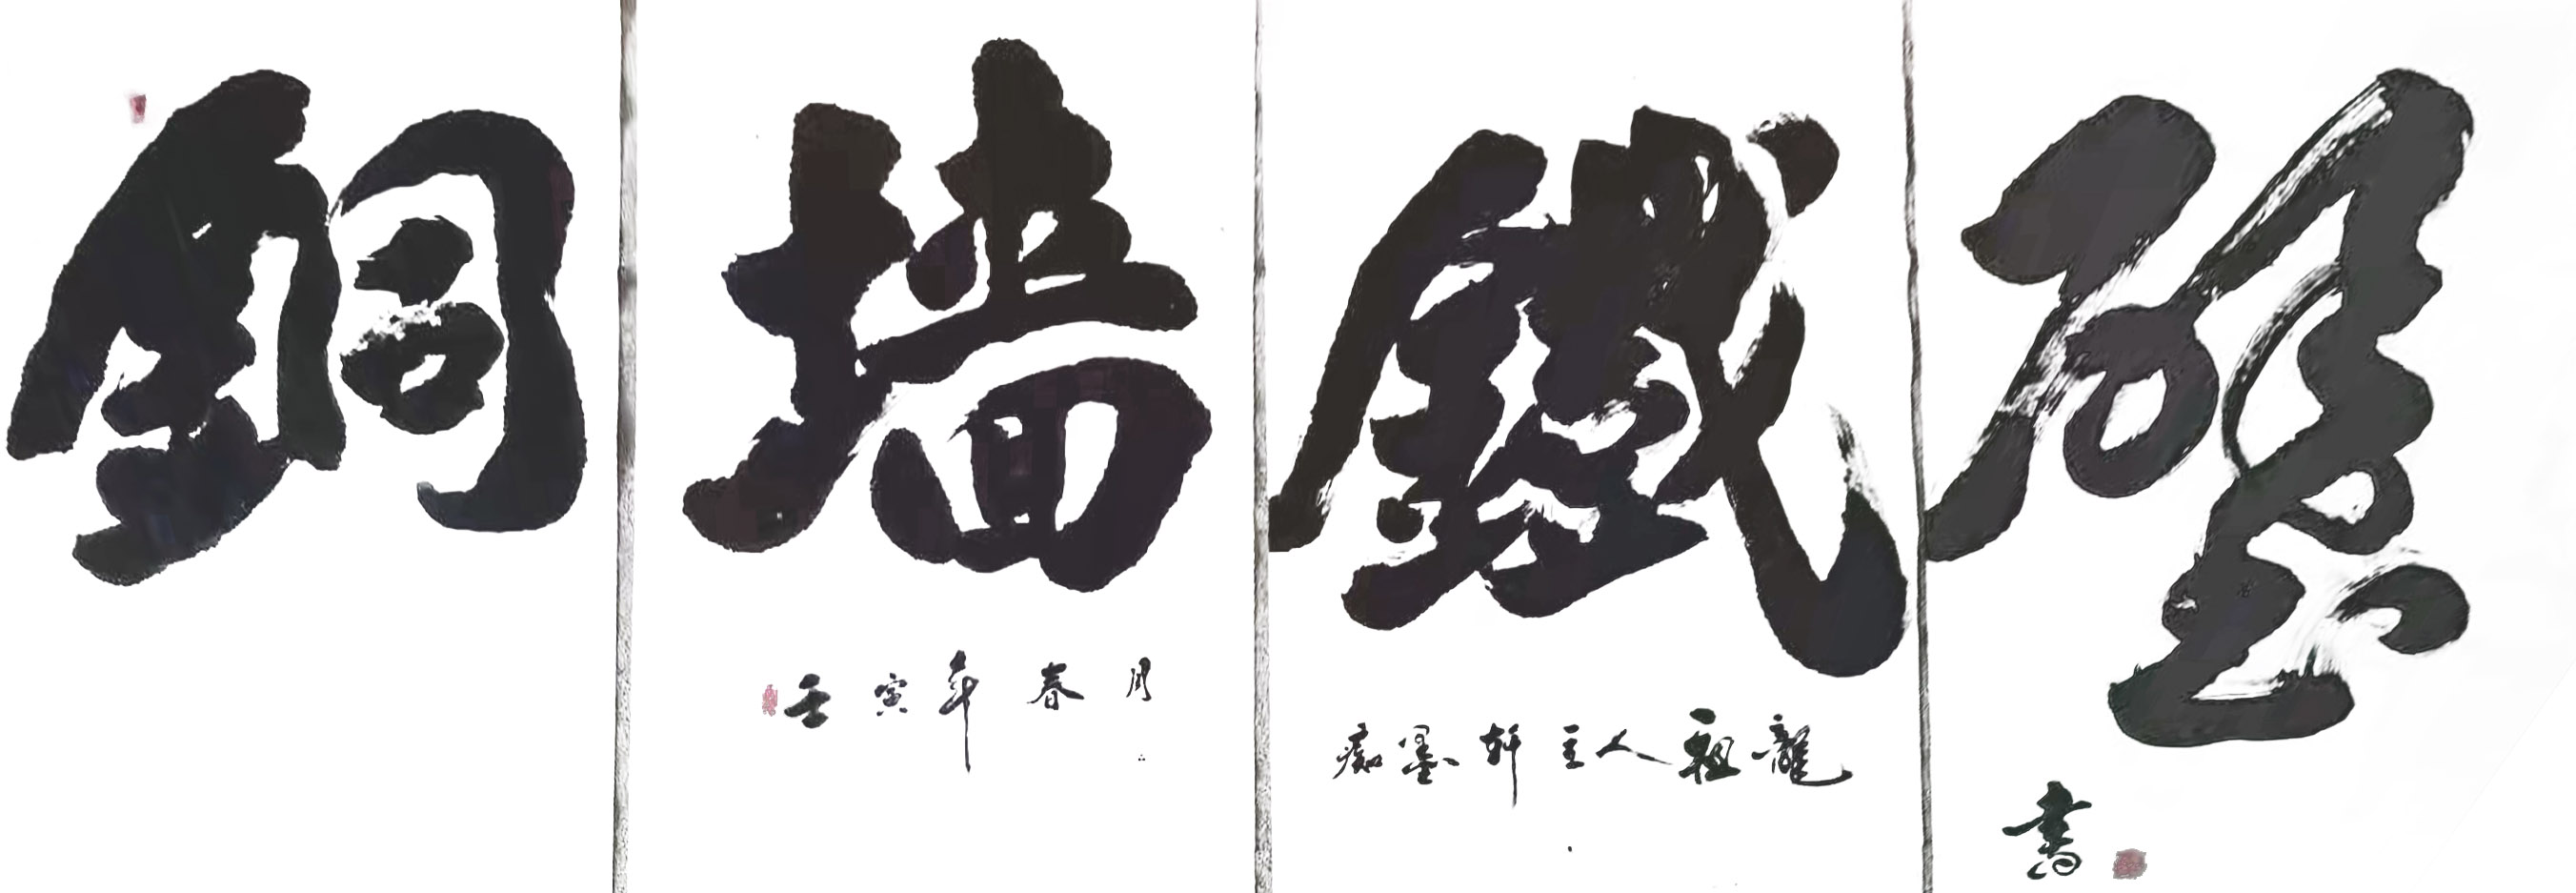 銅墙鐵壁
壬寅年春月
痴墨軒主人祖龍
書